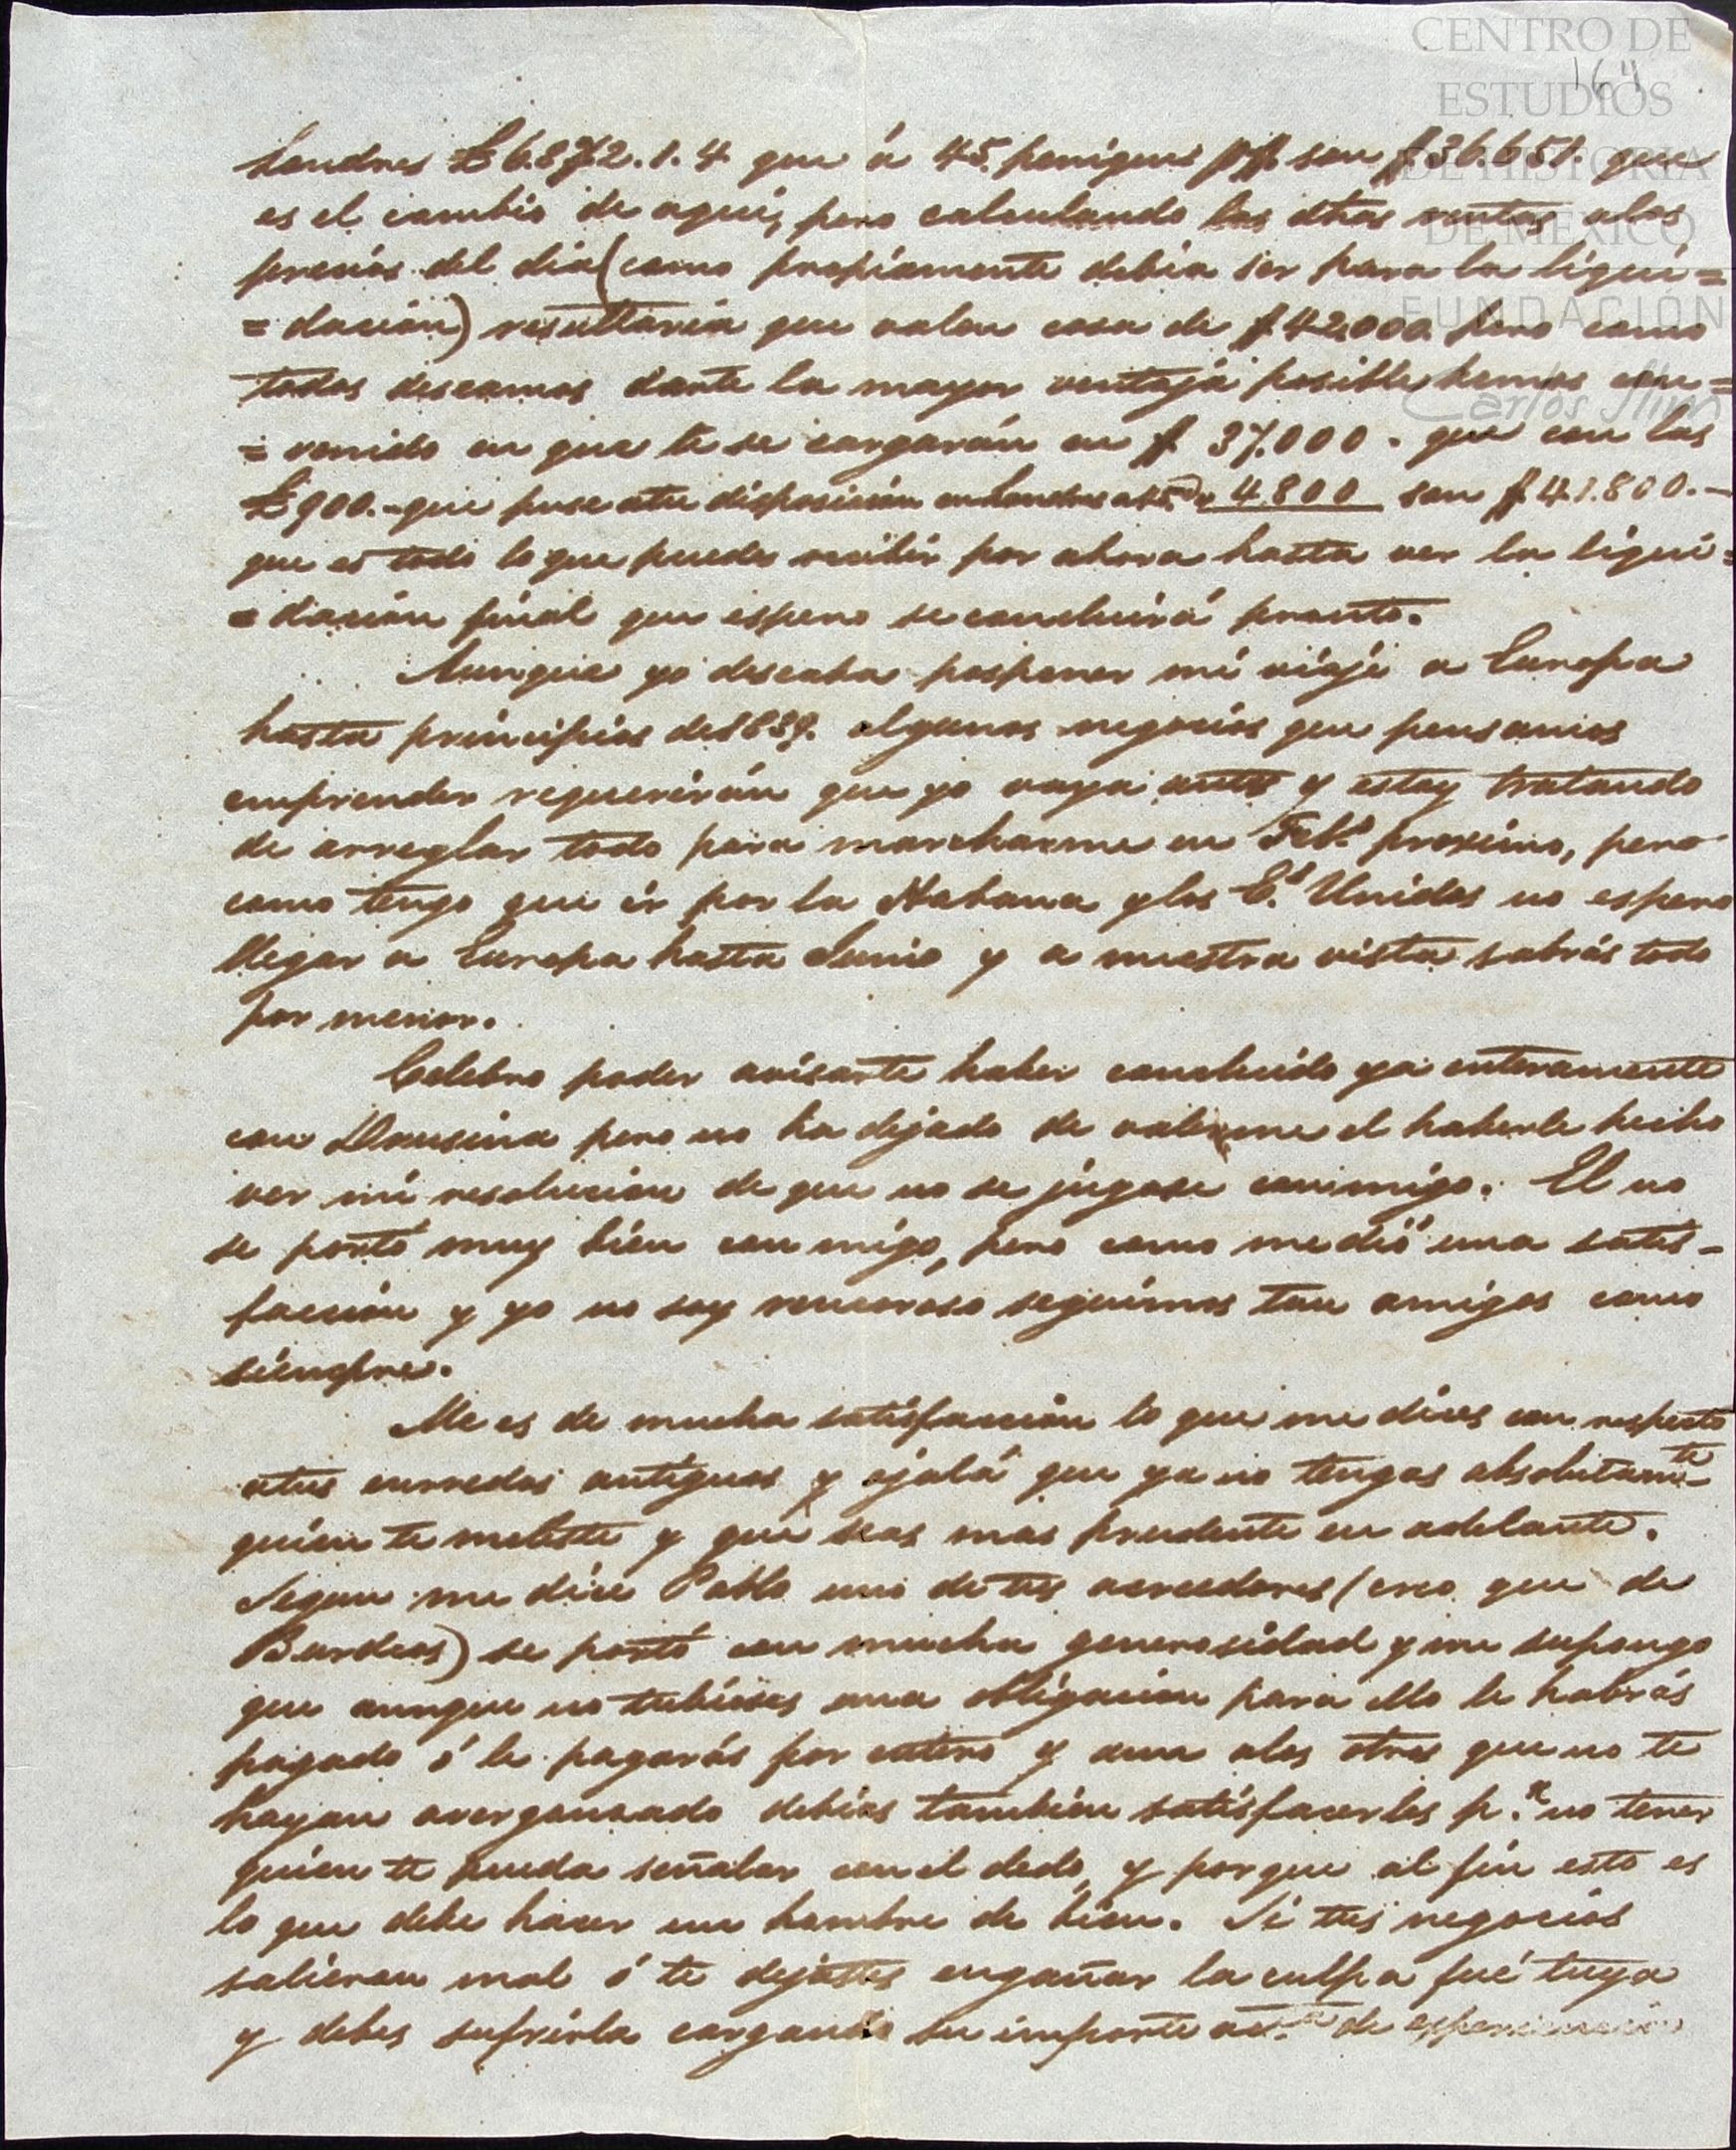 CENTRO DE
ESTUDIOS
DE HISTORIA
DE MEXICO
FUNDACIÓN
Carlos Slim
164
Londres £6.872.1.4 que á 45. peniques p$ son $36.651. que
es el cambio de aqui, pero calculando las dhas rentas alos
precios del dia (como propiamente debia ser para la liqui=
=dacion) resultaria que valen cosa de $42.000. pero como
todos deseamos darte la mayor ventaja posible hemos con=
=venido en que te se cargarán en $ 37.000. que con las
£900.- que puse atu disposicion en Londres a 45.d " 4.800 son $41.800.-
que es todo lo que puedes recibir por ahora hasta ver la liqui=
=dacion final que espero se concluirá pronto.
Aunque yo deseaba posponer mi viaje a Europa
hasta principios de 1839. algunos negocios que pensamos
emprender requerirán que yo vaya antes y estoy tratando
de arreglar todo para marcharme en Feb.o proximo, pero
como tengo que ir por la Habana y los E.s Unidos no espero
llegar a Europa hasta Junio y a nuestra vista sabrás todo
por menor.
Celebro poder avisarte haber concluido ya enteramente
con Drusina pero no ha dejado de valerme el haberle hecho
ver mi resolucion de que no se jugase conmigo. El no
se portó muy bien conmigo, pero como me dió una satis-
faccion y yo no soy rencoroso seguimos tan amigos como
siempre.
Me es de mucha satisfaccion lo que me dices con respecto
atus enredos antiguos y ojalá que ya no tengas absolutam.te
quien te moleste y que seas mas prudente en adelante.
Segun me dice Pablo uno de tus acreedores (creo que de
Burdeos) se portó con mucha generosidad y me supongo
que aunque no tubieses una obligacion para ello le habrás
pagado ó le pagarás por entero y aun alos otros que no te
hayan avergonzado debias tambien satisfacerles p.a no tener
quien te pueda señalar con el dedo, y porque al fin esto es
lo que debe hacer un hombre de bien. Si tus negocios
salieron mal ó te dejastes engañar la culpa fué tuya
y debes sufrirla cargando su importe a c.ta de esperiencia